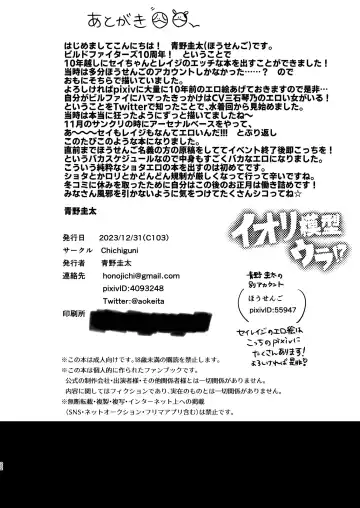 あとがき
はじめましてこんにちは！ 青野圭太(ほうせんご)です。
ビルドファイターズ10周年！ ということで
10年越しにセイちゃんとレイジのエッチな本を出すことができました！
当時は多分ほうせんごのアカウントしかなかった……？ ので
おもにそちらで描いていました。
よろしければpixivに大量に10年前のエロ絵あげておきますので是非…
自分がビルファイにハマったきっかけはCV三石琴乃のエロい女がいる！
ということをTwitterで知ったことで、水着回から見始めました。
当時は本当に狂ったようにずっと描いてましたね〜
11月のサンクリの時にアーセナルベースをやって、
あ〜〜〜セイもレイジもなんてエロいんだ!!! とぶり返し
このたびこのような本になりました。
直前までほうせんご名義の方の原稿をしててイベント終了後即こっちを！
というバカスケジュールなので中身もすごくバカなエロになりました。
こういう純粋なショタエロの本を出すのは初めてです。
ショタとかロリとかどんどん規制が厳しくなって行って辛いですね。
冬コミに休みを取ったために自分はこの後のお正月は働き詰めです！
みなさん風邪を引かないように気をつけてたくさんシコってね☆
青野圭太
イオリ模型
ウラ!?
発行日 2023/12/31(C103)
サークル Chichiguni
発行者 青野圭太
連絡先 honojichi@gmail.com
pixivID:4093248
Twitter:@aokeita
印刷所
青野圭太の
別アカウント
ほうせんご
pixivID:55947
セイレイジのエロ絵は
こっちのpixivに
たくさんあります！
よろしければ是非！
※この本は成人向けです。18歳未満の購読を禁止します。
※この本は個人的に作られたファンブックです。
公式の制作会社・出演者様・その他関係者様とは一切関係がありません。
内容に関してはフィクションであり、実在のものとは一切関係ありません。
※無断転載・複製・複写・インターネット上への掲載
(SNS・ネットオークション・フリマアプリ含む)は禁止です。